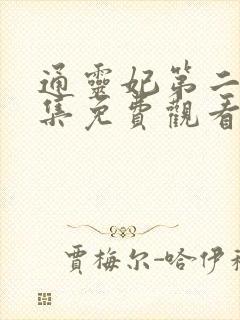 通靈妃第二
集免費觀看
賈梅尔-哈伊